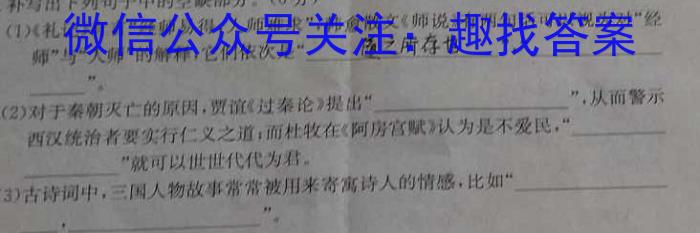 补写出下列句子中的空缺部分。(6分)
(1)《礼
微信公众号关注：趣找答案
师"与"人师"的解释,它们依次是"
"。
(2)对于秦朝灭亡的原因,贾谊《过秦论》提出"",从而警示
西汉统治者要实行仁义之道;而杜牧在《阿房宫赋》认为是不爱民,"
"就可以世世代代为君。
(3)古诗词中,三国人物故事常常被用来寄寓诗人的情感,比如"
,"。